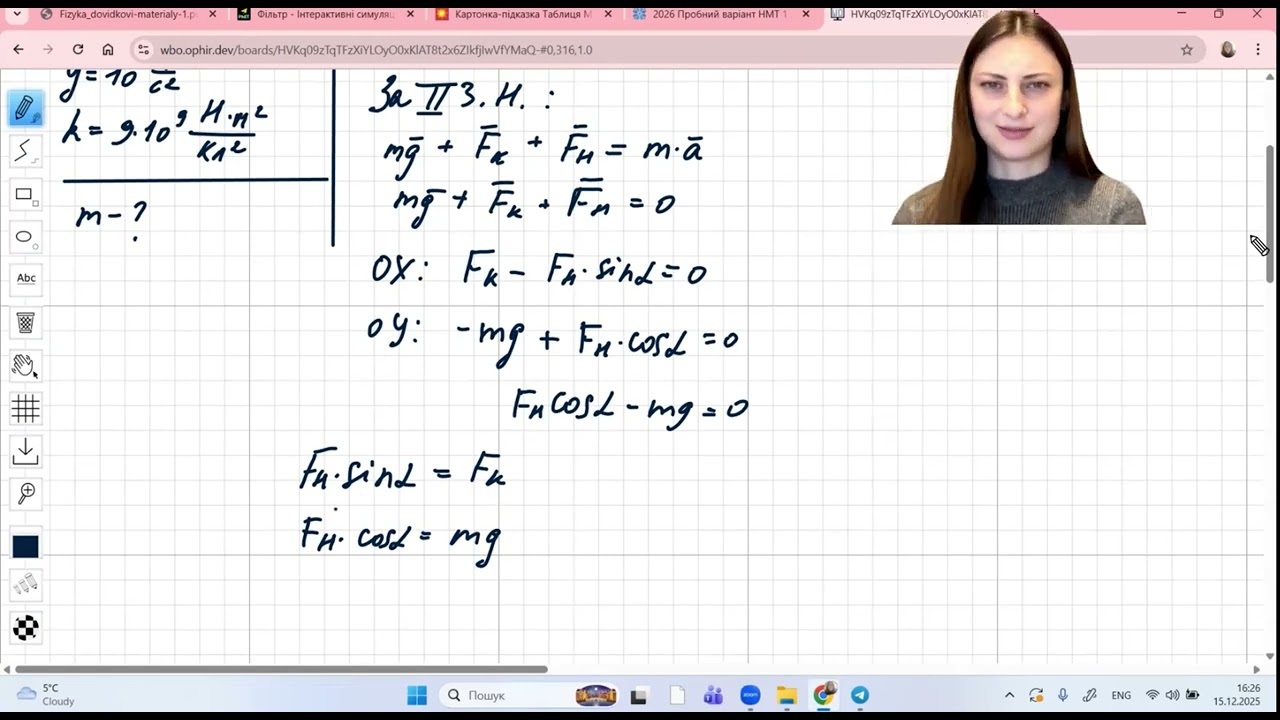 Fizyka_dovidkovi-materialy-1.p
Фільтр - Інтерактивні симуляц
Картонка-підказка Таблиця М
2026 Пробний варіант НМТ 1
HVKq09zTqTFzXiYLOyO0xKlAT8
wbo.ophir.dev/boards/HVKq09zTqTFzXiYLOyO0xKlAT8t2x6ZIkfjIwVfYMaQ-#0,316,1.0
g = 10 м/с²
k = 9·10⁹ Н·м²/Кл²
m - ?
За II З. Н. :
mḡ + F̄к + F̄н = m·ā
mḡ + F̄к + F̄н = 0
OX: Fк - Fн·sinα = 0
OY: -mg + Fн·cosα = 0
Fн cosα - mg = 0
Fн·sinα = Fк
Fн·cosα = mg
Abc
5°C
Cloudy
Пошук
zoom
ENG
16:26
15.12.2025